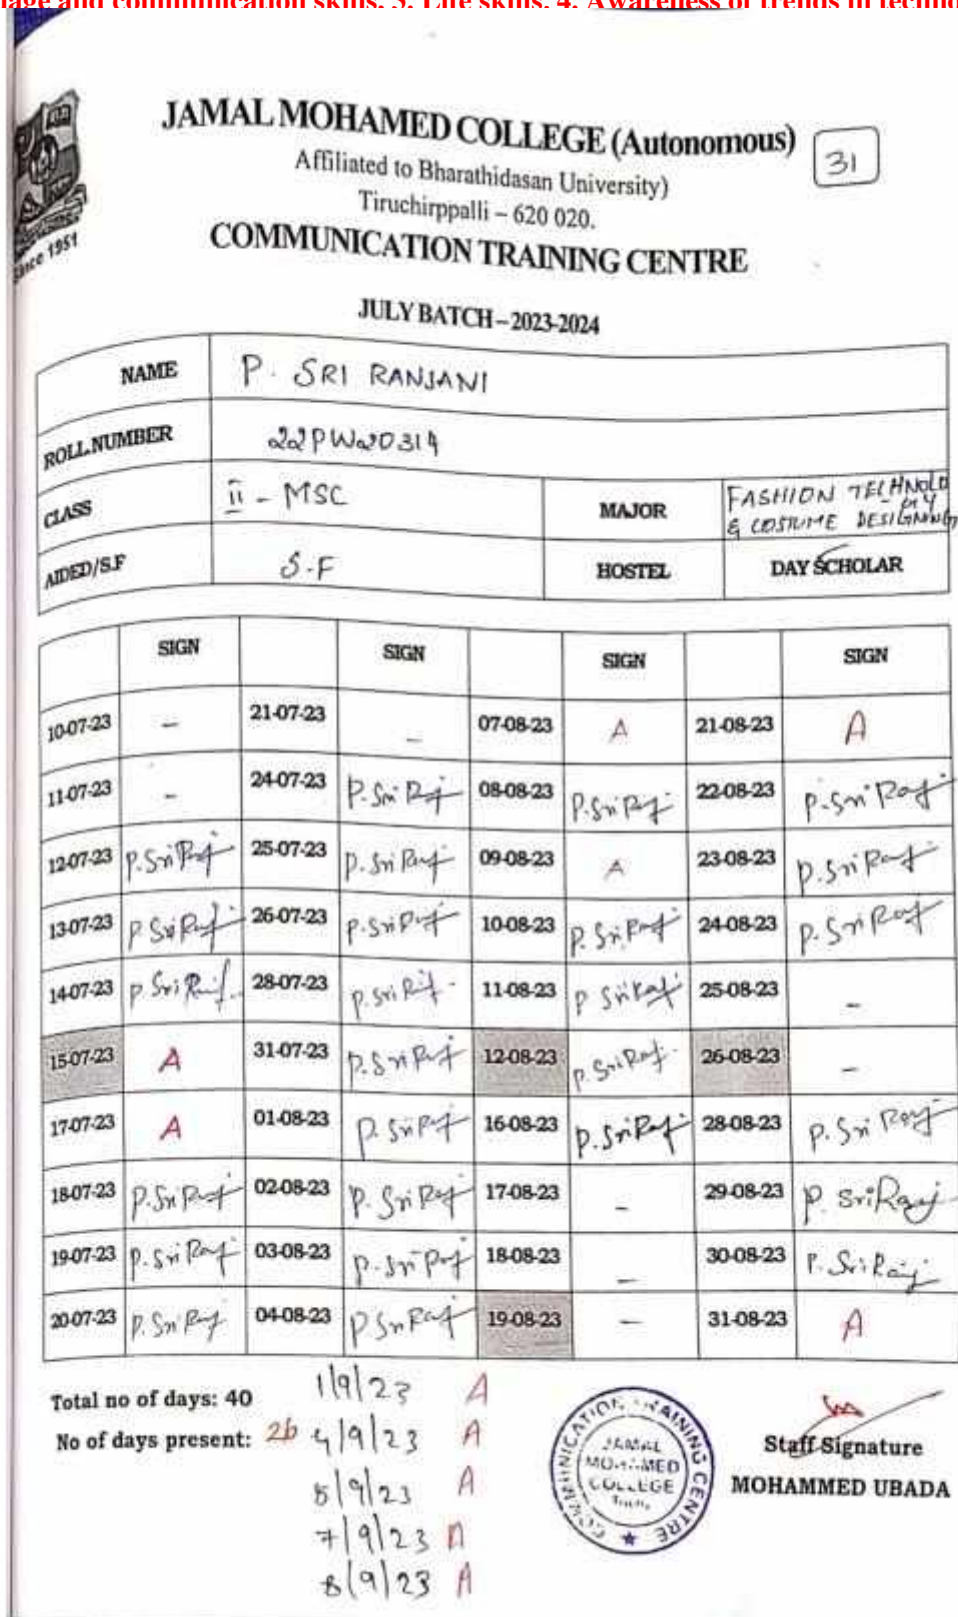 age and communication skills. 3. Life skills. 4. Awareness of trends in techno
JAMAL MOHAMED COLLEGE (Autonomous)
31
Affiliated to Bharathidasan University)
Tiruchirppalli – 620 020.
Since 1951
COMMUNICATION TRAINING CENTRE
JULY BATCH – 2023-2024
NAME P. SRI RANJANI
ROLL.NUMBER 22PW20314
CLASS II - MSC MAJOR FASHION TECHNOLOGY & COSTUME DESIGNING
AIDED/S.F S.F HOSTEL DAY SCHOLAR
SIGN SIGN SIGN SIGN
10-07-23 – 21-07-23 – 07-08-23 A 21-08-23 A
11-07-23 – 24-07-23 P.Sri Raj 08-08-23 P.Sri Raj 22-08-23 P.Sri Raj
12-07-23 P.Sri Raj 25-07-23 P.Sri Raj 09-08-23 A 23-08-23 P.Sri Raj
13-07-23 P.Sri Raj 26-07-23 P.Sri Raj 10-08-23 P.Sri Raj 24-08-23 P.Sri Raj
14-07-23 P.Sri Raj 28-07-23 P.Sri Raj 11-08-23 P.Sri Raj 25-08-23 –
15-07-23 A 31-07-23 P.Sri Raj 12-08-23 P.Sri Raj 26-08-23 –
17-07-23 A 01-08-23 P.Sri Raj 16-08-23 P.Sri Raj 28-08-23 P.Sri Raj
18-07-23 P.Sri Raj 02-08-23 P.Sri Raj 17-08-23 – 29-08-23 P.Sri Raj
19-07-23 P.Sri Raj 03-08-23 P.Sri Raj 18-08-23 – 30-08-23 P.Sri Raj
20-07-23 P.Sri Raj 04-08-23 P.Sri Raj 19-08-23 – 31-08-23 A
Total no of days: 40
No of days present: 26
1/9/23 A
4/9/23 A
5/9/23 A
7/9/23 A
8/9/23 A
COMMUNICATION TRAINING CENTRE
JAMAL
MOHAMED
COLLEGE
Staff Signature
MOHAMMED UBADA